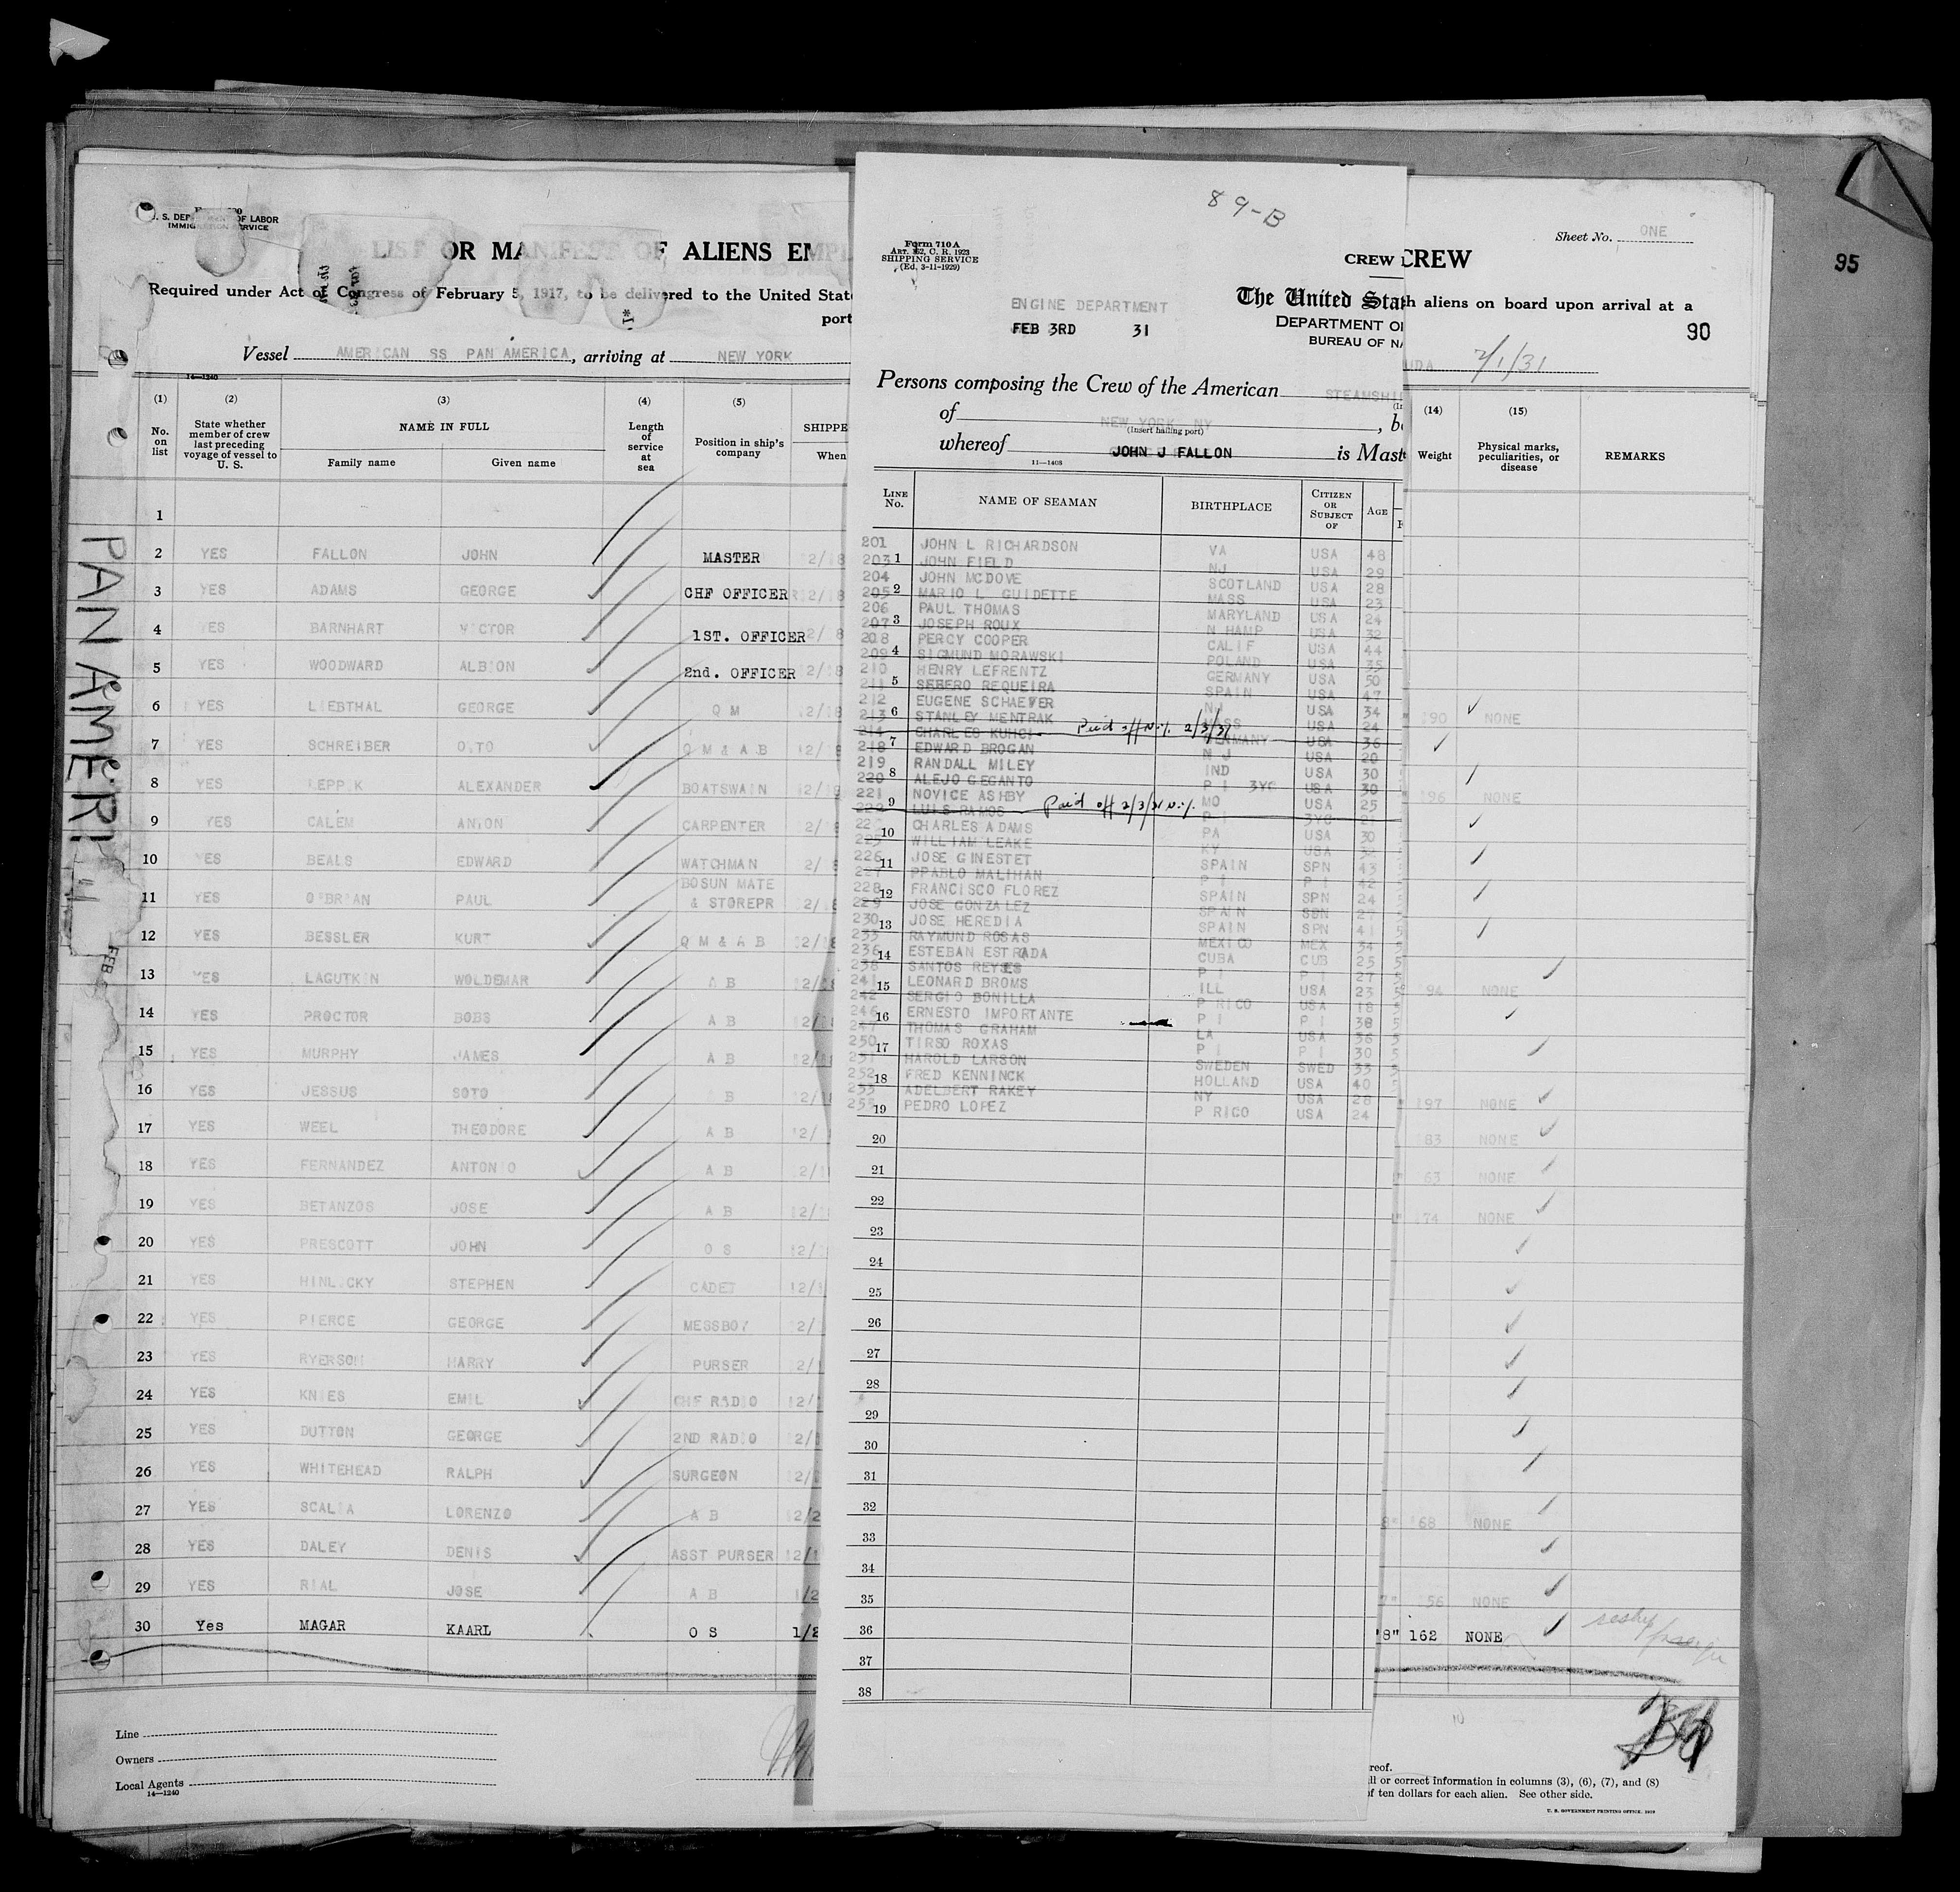 89-B
Sheet No. ONE
U. S. DEPARTMENT OF LABOR
IMMIGRATION SERVICE
LIST OR MANIFEST OF ALIENS EMPL
CREW
95
Required under Act of Congress of February 5, 1917, to be delivered to the United Stat
th aliens on board upon arrival at a
port
90
Vessel AMERICAN SS PAN AMERICA, arriving at NEW YORK
2/1/31
14—1240
(1) (2) (3) (4) (5)
No. on list
State whether member of crew last preceding voyage of vessel to U. S.
NAME IN FULL
Family name Given name
Length of service at sea
Position in ship's company
SHIPPE
When
PAN AMERICA
FEB
1
2 YES FALLON JOHN MASTER
3 YES ADAMS GEORGE CHF OFFICER
4 YES BARNHART VICTOR 1ST. OFFICER
5 YES WOODWARD ALBION 2nd. OFFICER
6 YES LIEBTHAL GEORGE Q M
7 YES SCHREIBER OTTO Q M & A B
8 YES LEPPIK ALEXANDER BOATSWAIN
9 YES CALEM ANTON CARPENTER
10 YES BEALS EDWARD WATCHMAN
11 YES O'BRIAN PAUL BOSUN MATE & STOREPR
12 YES BESSLER KURT Q M & A B
13 YES LAGUTKIN WOLDEMAR A B
14 YES PROCTOR BOBS A B
15 YES MURPHY JAMES A B
16 YES JESSUS SOTO B
17 YES WEEL THEODORE A B
18 YES FERNANDEZ ANTONIO A B
19 YES BETANZOS JOSE A B
20 YES PRESCOTT JOHN O S
21 YES HINLICKY STEPHEN CADET
22 YES PIERCE GEORGE MESSBOY
23 YES RYERSON HARRY PURSER
24 YES KNIES EMIL CHF RADIO
25 YES DUTTON GEORGE 2ND RADIO
26 YES WHITEHEAD RALPH SURGEON
27 YES SCALIA LORENZO A B
28 YES DALEY DENIS ASST PURSER
29 YES RIAL JOSE A B
30 Yes MAGAR KAARL O S 1/2
Line
Owners
Local Agents
14—1240
Form 710 A
ART. 162, C. R. 1923
SHIPPING SERVICE
(Ed. 3-11-1929)
CREW L
ENGINE DEPARTMENT
FEB 3RD 31
The United Stat
DEPARTMENT O
BUREAU OF NA
Persons composing the Crew of the American STEAMSHI
of NEW YORK NY, b
(Insert hailing port)
whereof JOHN J FALLON is Mast
11—1408
LINE No. NAME OF SEAMAN BIRTHPLACE CITIZEN OR SUBJECT OF AGE
201 JOHN L RICHARDSON VA USA 48
203 1 JOHN FIELD NJ USA 29
204 JOHN MCDOVE SCOTLAND USA 28
205 2 MARIO L GUIDETTE MASS USA 23
206 PAUL THOMAS MARYLAND USA 24
207 3 JOSEPH ROUX N HAMP USA 32
208 PERCY COOPER CALIF USA 44
209 4 SIGMUND MORAWSKI POLAND USA 35
210 HENRY LEFRENTZ GERMANY USA 50
211 5 SEBERO REQUEIRA SPAIN USA 47
212 EUGENE SCHAEFER NJ USA 34
213 6 STANLEY MENTRAK MASS USA 24
214 CHARLES KUHCI Paid off N.Y. 2/3/31 GERMANY USA 36
218 7 EDWARD BROGAN N J USA 20
219 RANDALL MILEY IND USA 30
220 8 ALEJO GEGANTO P I 3YC USA 30
221 NOVICE ASHBY MO USA 25
222 9 LUIS RAMOS Paid off 2/3/31 N.Y. P I 3YC 21
10 CHARLES ADAMS PA USA 30
225 WILLIAM LEAKE KY USA
226 11 JOSE GINESTET SPAIN SPN 43
227 PPABLO MALIHAN P I P I 42
228 12 FRANCISCO FLOREZ SPAIN SPN 24
229 JOSE GONZALEZ SPAIN SPN 27
230 13 JOSE HEREDIA SPAIN SPN 41
233 RAYMUND ROSAS MEXICO MEX 34
236 14 ESTEBAN ESTRADA CUBA CUB 25
238 SANTOS REYES P I P I 27
241 15 LEONARD BROMS ILL USA 23
242 SERGIO BONILLA P RICO USA 18
246 16 ERNESTO IMPORTANTE P I P I 38
247 THOMAS GRAHAM LA USA 36
250 17 TIRSO ROXAS P I P I 30
251 HAROLD LARSON SWEDEN SWED 33
252 18 FRED KENNINCK HOLLAND USA 40
253 ADELBERT RAKEY NY USA 28
19 PEDRO LOPEZ P RICO USA 24
20
21
22
23
24
25
26
27
28
29
30
31
32
33
34
35
36
37
38
(14) (15)
Weight
Physical marks, peculiarities, or disease
REMARKS
190 NONE
196 NONE
194 NONE
197 NONE
183 NONE
163 NONE
174 NONE
8" 168 NONE
7" 156 NONE
'8" 162 NONE
reof.
ll or correct information in columns (3), (6), (7), and (8)
of ten dollars for each alien. See other side.
U. S. GOVERNMENT PRINTING OFFICE